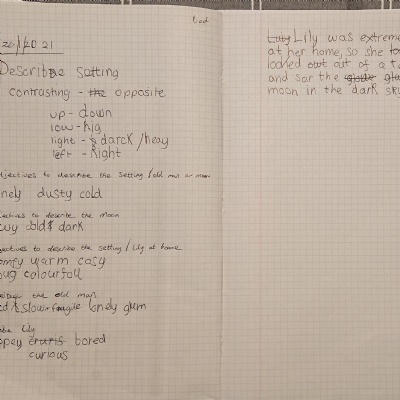 Lad
20/1/20 21
Describe setting
contrasting - opposite
up - down
low - hig
light - darck / heay
left - Right
adjectives to describe the setting / old man or moon
nely dusty cold
adjectives to describe the moon
cold dark
adjectives to describe the setting / Lily at home
comfy warm cosy
colourfoll
the old man
slow fragile lonely glum
Lily
bored
curious
Lily was extreme
at her home, so she
looked out of a t
and sar the
moon in the dark sky